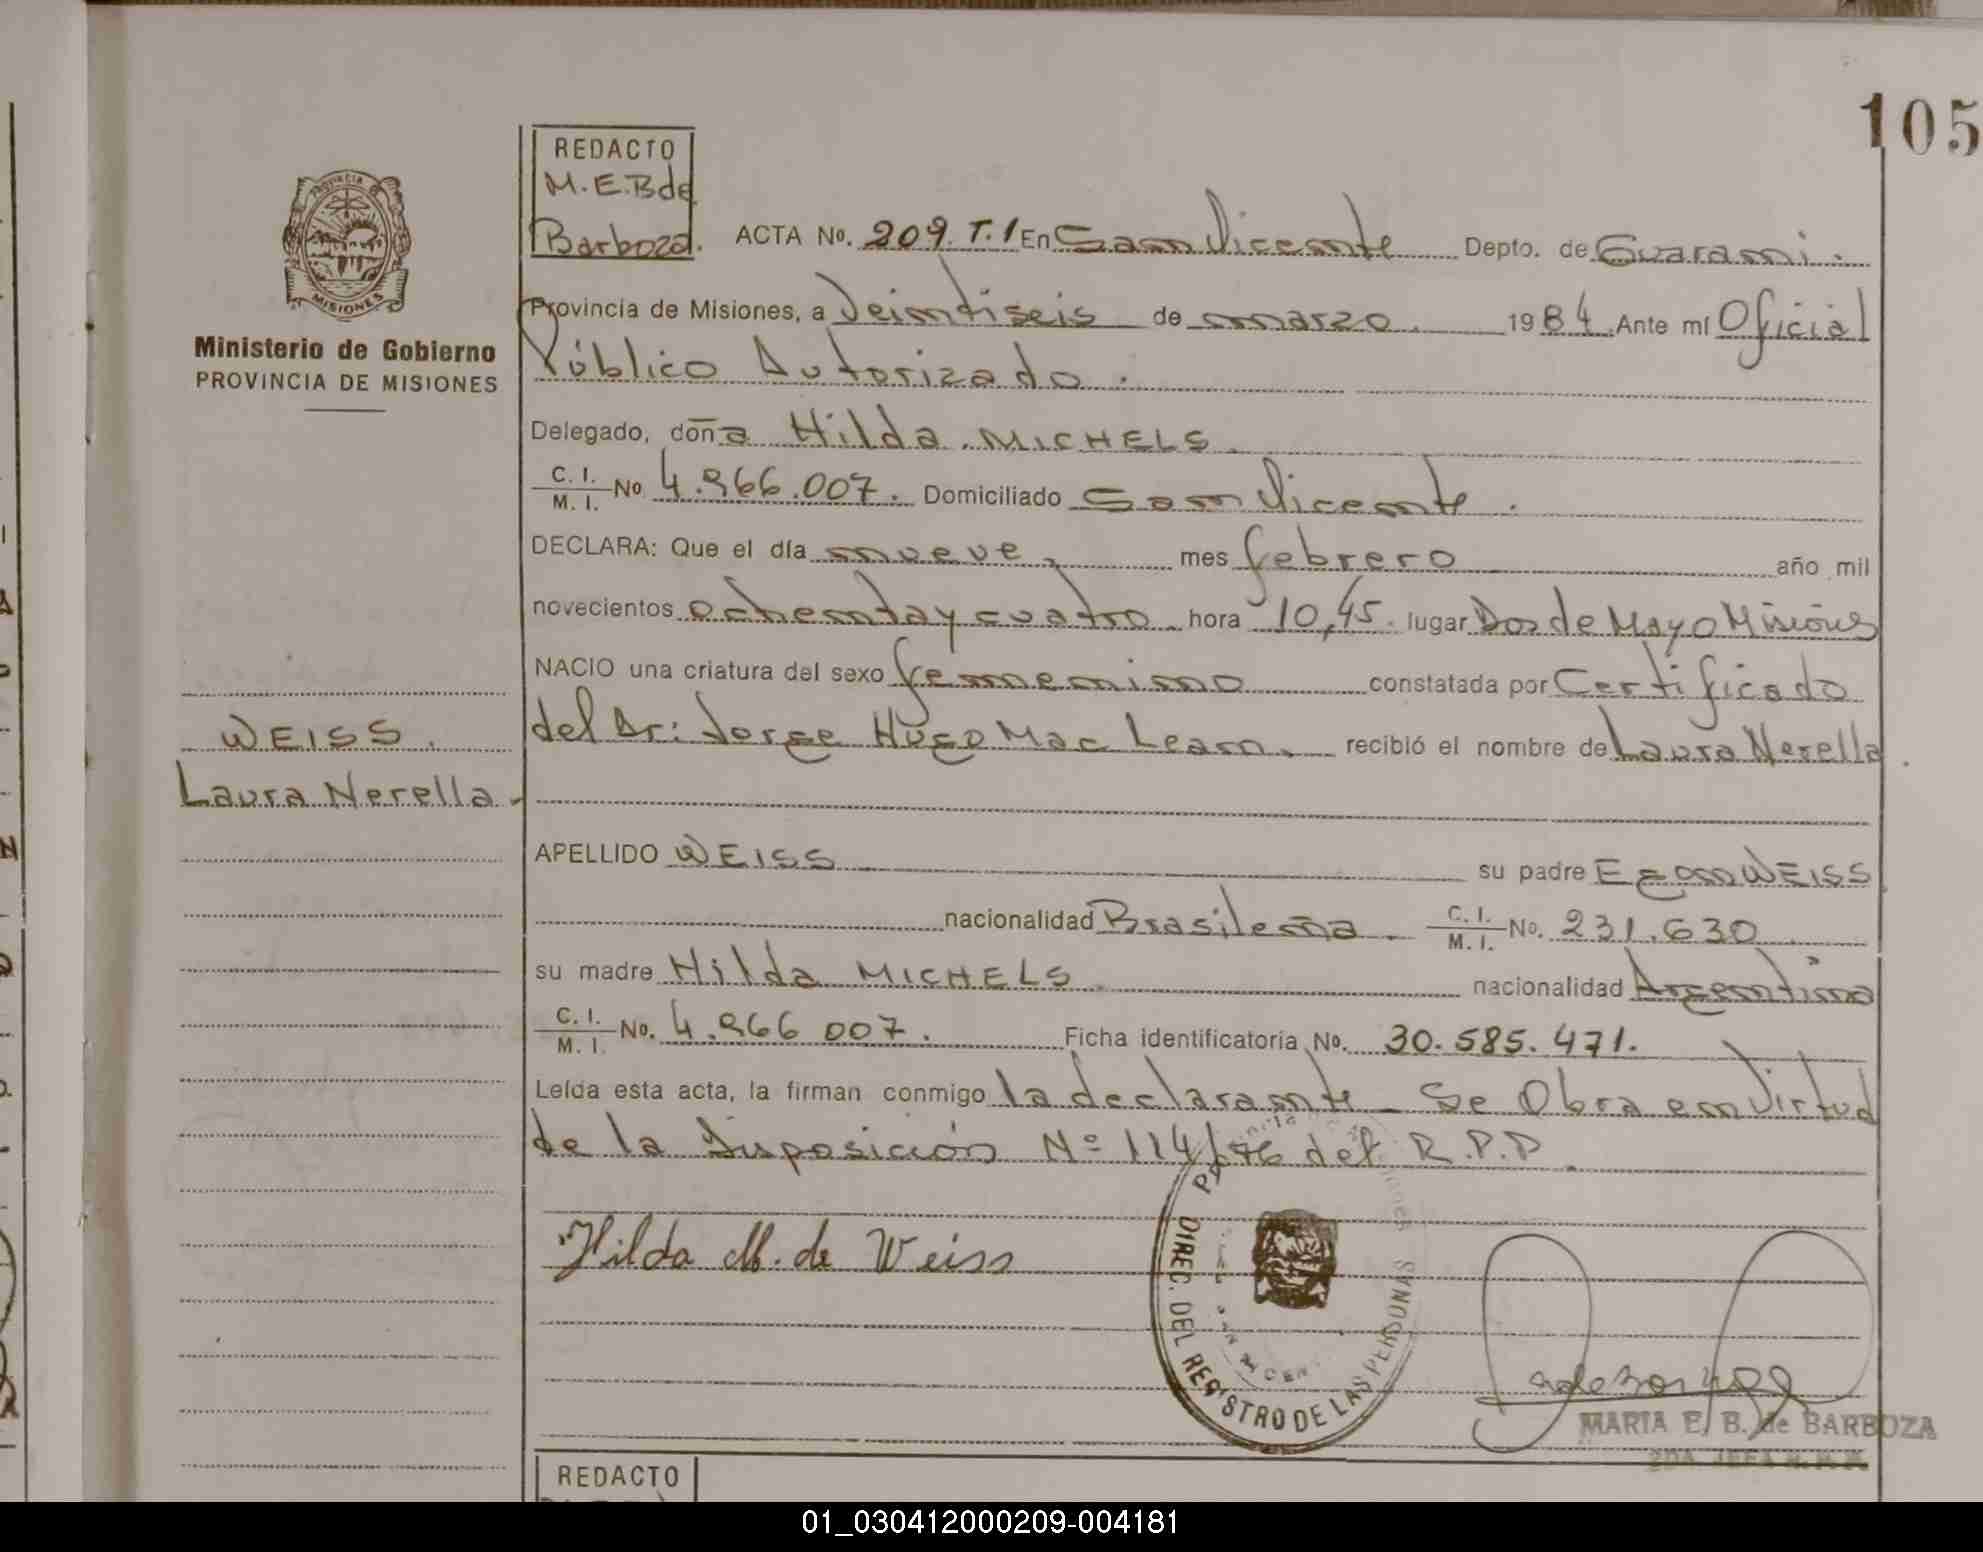 105
REDACTO
M.E.B de
Barboza.
ACTA No. 209. T.1 En San Vicente Depto. de Guarani.
Provincia de Misiones, a Veintiseis de marzo. 1984. Ante mí Oficial
Público Autorizado.
PROVINCIA DE
MISIONES
Ministerio de Gobierno
PROVINCIA DE MISIONES
Delegado, doña Hilda MICHELS.
C. I. / M. I. No 4.966.007. Domiciliado San Vicente.
DECLARA: Que el día nueve, mes febrero año mil
novecientos ochenta y cuatro hora 10,45. lugar Dos de Mayo Misiones
NACIO una criatura del sexo femenino constatada por Certificado
del Dr: Jorge Hugo Mac Lean. recibió el nombre de Laura Nerella.
WEISS.
Laura Nerella-
APELLIDO WEISS su padre Egon WEISS
nacionalidad Brasileña. C. I. / M. I. No. 231.630
su madre Hilda MICHELS. nacionalidad Argentina
C. I. / M. I. No. 4.966 007. Ficha identificatoria No. 30.585.471.
Leída esta acta, la firman conmigo la declarante - Se Obra en Virtud
de la Disposición Nº 114/76 del R.P.P.
Hilda M. de Weiss
DIREC. DEL REGISTRO DE LAS PERSONAS
MARIA E. B. de BARBOZA
2DA JEFA R. P. P.
REDACTO
01_030412000209-004181